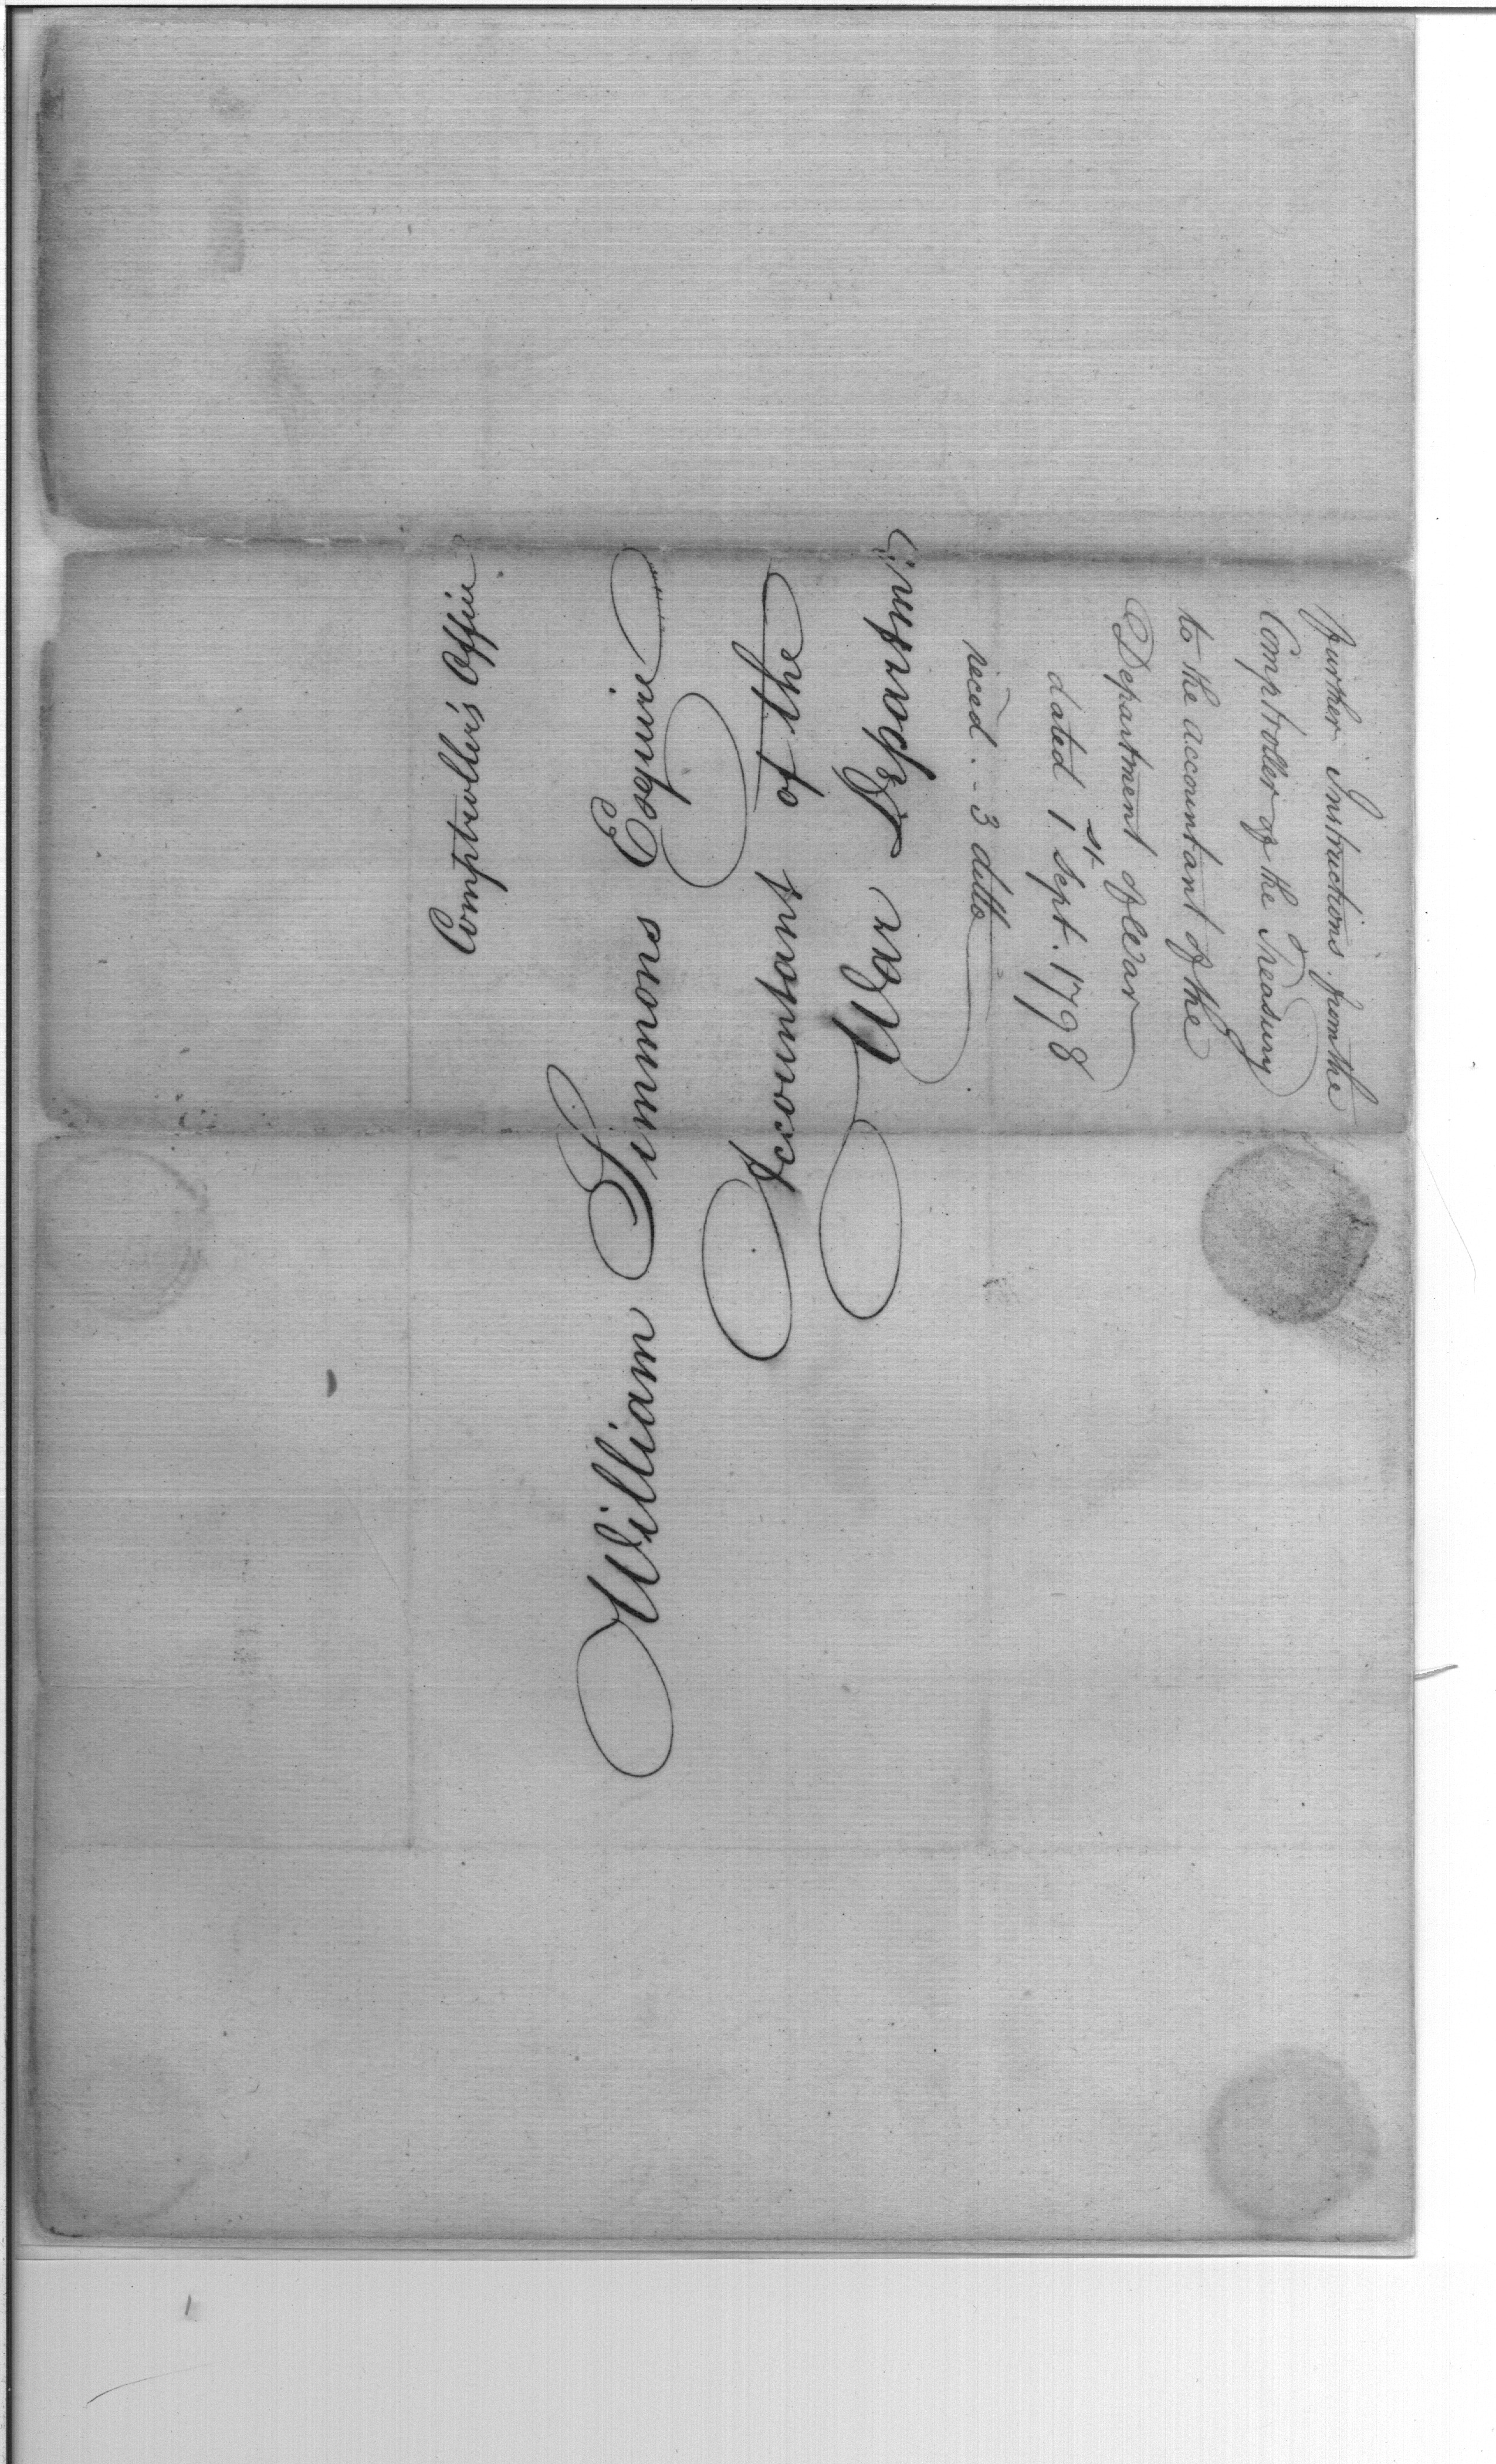 Comptroller's Office
William Simmons Esquire
Accountant of the
War Department
further Instructions from the
Comptroller of the Treasury
to the accountant of the
Department of War
dated 1st Sept. 1798
reced. - 3 ditto